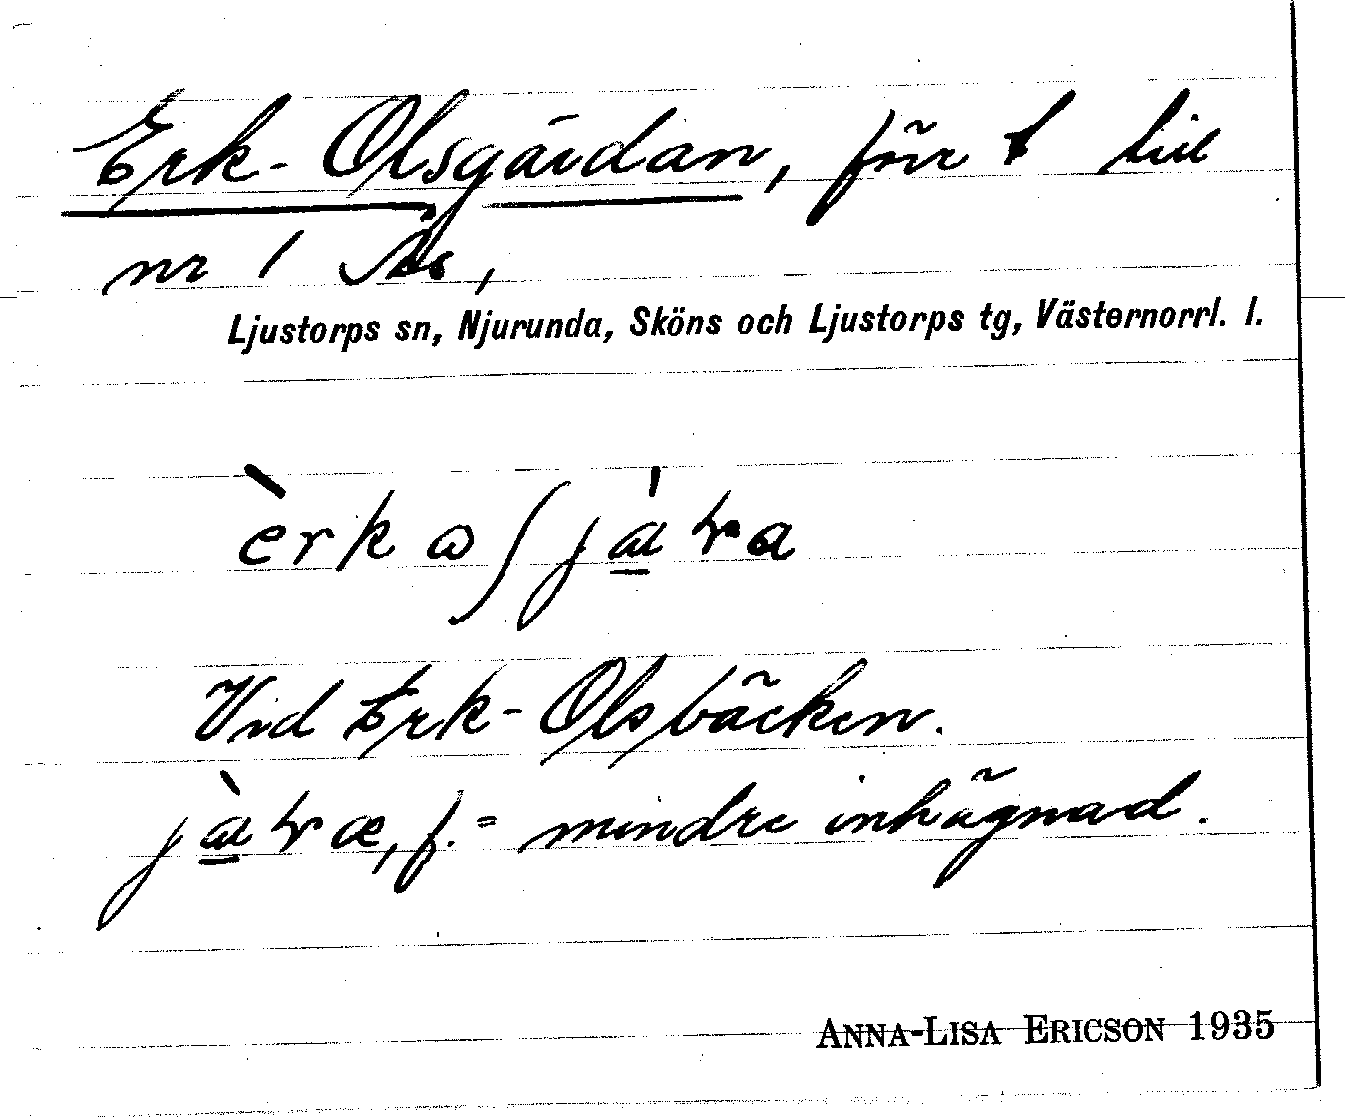 Erk-Olsgärdan, förr t till
nr 1 Ås,
Ljustorps sn, Njurunda, Sköns och Ljustorps tg, Västernorrl. l.
Vid Erk-Olsbäcken.
f. = mindre inhägnad.
ANNA-LISA ERICSON 1935